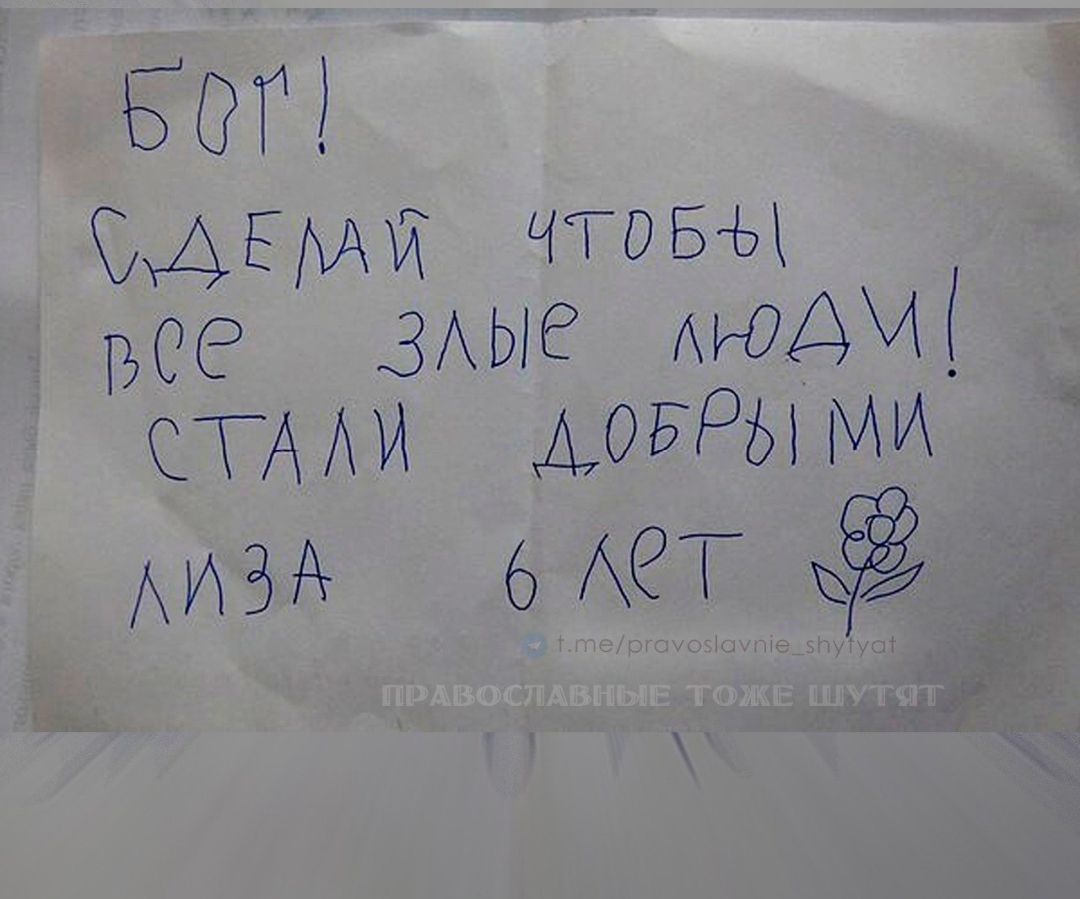 БОГ!
СДЕЛАЙ ЧТОБЫ
ВСЕ ЗЛЫЕ ЛЮДИ!
СТАЛИ ДОБРЫМИ
ЛИЗА 6 ЛЕТ
t.me/pravoslavnie_shytyat
ПРАВОСЛАВНЫЕ ТОЖЕ ШУТЯТ